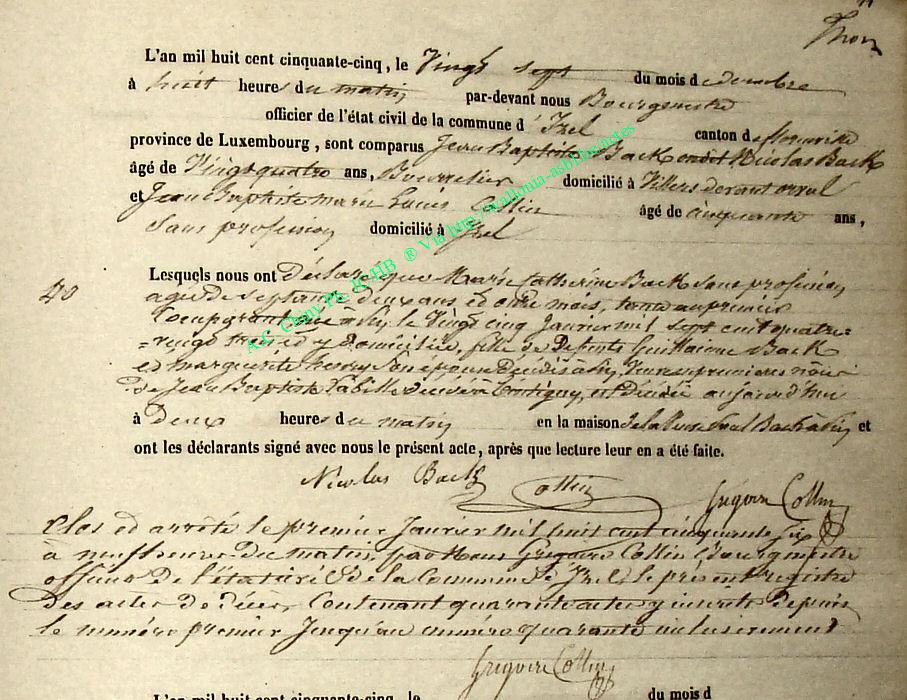 Thon
L'an mil huit cent cinquante-cinq, le Vingt sept du mois de décembre
à huit heures du matin par-devant nous Bourgmestre
officier de l'état civil de la commune d'Izel canton de florenville
province de Luxembourg, sont comparus Jean Baptiste Back Nicolas Back
âgé de Vingt quatre ans, Bourrelier domicilié à Villers devant orval
et Jean Baptiste marie Louis Collin âgé de cinquante ans,
Sans profession domicilié à Izel
Lesquels nous ont Déclaré que Marie Catherine Back Sans profession
40
agée de Septante deux ans et onze mois,
le Vingt cinq Janvier mil sept cent quatre=
=vingt trois et y domiciliée, fille de Défunts Guillaume Back
et marguerite henry
de Jean Baptiste décédé à est décédée aujourd'hui
à Deux heures du matin en la maison de la Back à et
ont les déclarants signé avec nous le présent acte, après que lecture leur en a été faite.
Nicolas Back Collin Grégoire Collin
Clos et arrêté le premier Janvier mil huit cent cinquante Six
à neuf heures du matin, par Nous Grégoire Collin Bourgmestre
officier de l'état civil de la Commune d'Izel, le présent registre
des actes de décès, Contenant quarante actes y inscrits depuis
le numéro premier Jusqu'au numéro quarante inclusivement
Grégoire Collin
L'an mil huit cent cinquante-cinq, le du mois d
A.C. Chiny Ph. JC-HB ® Via http://wallonia-asbl.be/actes